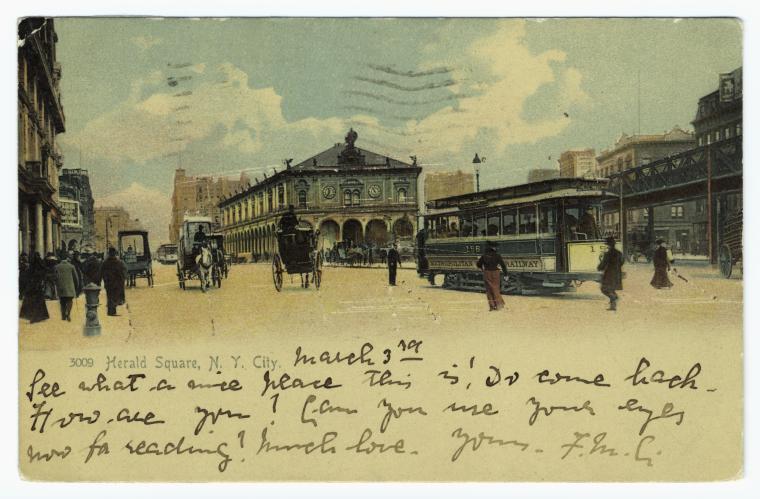 158
METROPOLITAN STREET RAILWAY
3009 Herald Square, N. Y. City. March 3rd
See what a nice place this is! Do come back.
How are you? Can you use your eyes
now for reading? Much love. Yours. F.M.C.